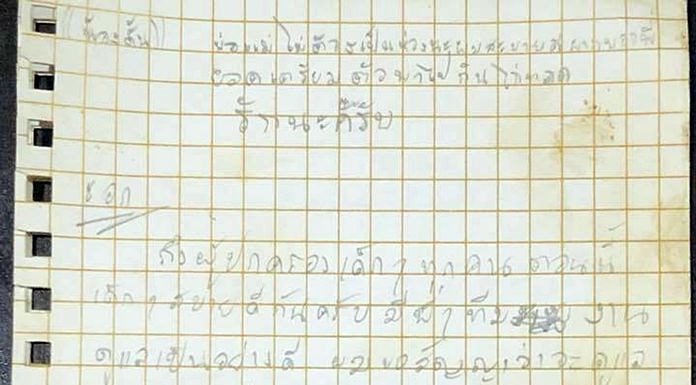 (น้องตั้น) พ่อแม่ ไม่ต้องเป็นห่วงนะผมสบายดี
ยอดเตรียมตัวพาไปกินไก่ทอด
ร้านนะคร๊ับ
เอก
ถึงผู้ปกครองเด็กๆ ทุกคน ตอนนี้
เด็กๆ สบายดีกันครับ มีพี่ๆ ทีม งาน
ดูแลเป็นอย่างดี ผมขอสัญญาว่าจะดูแล